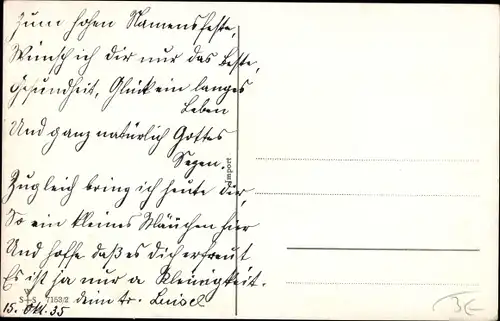 Zum hohen Namensfeste,
Wünsch ich dir nur das beste,
Gesundheit, Glück ein langes
Leben
Und ganz natürlich Gottes
Segen.
Zugleich bring ich heute dir,
So ein kleines hier
Und hoffe daß es Dich erfreut
Es ist ja nur a Kleinigkeit.
S+S 7153/2 deine tr. Luisel
15. Okt. 35
Import
3E